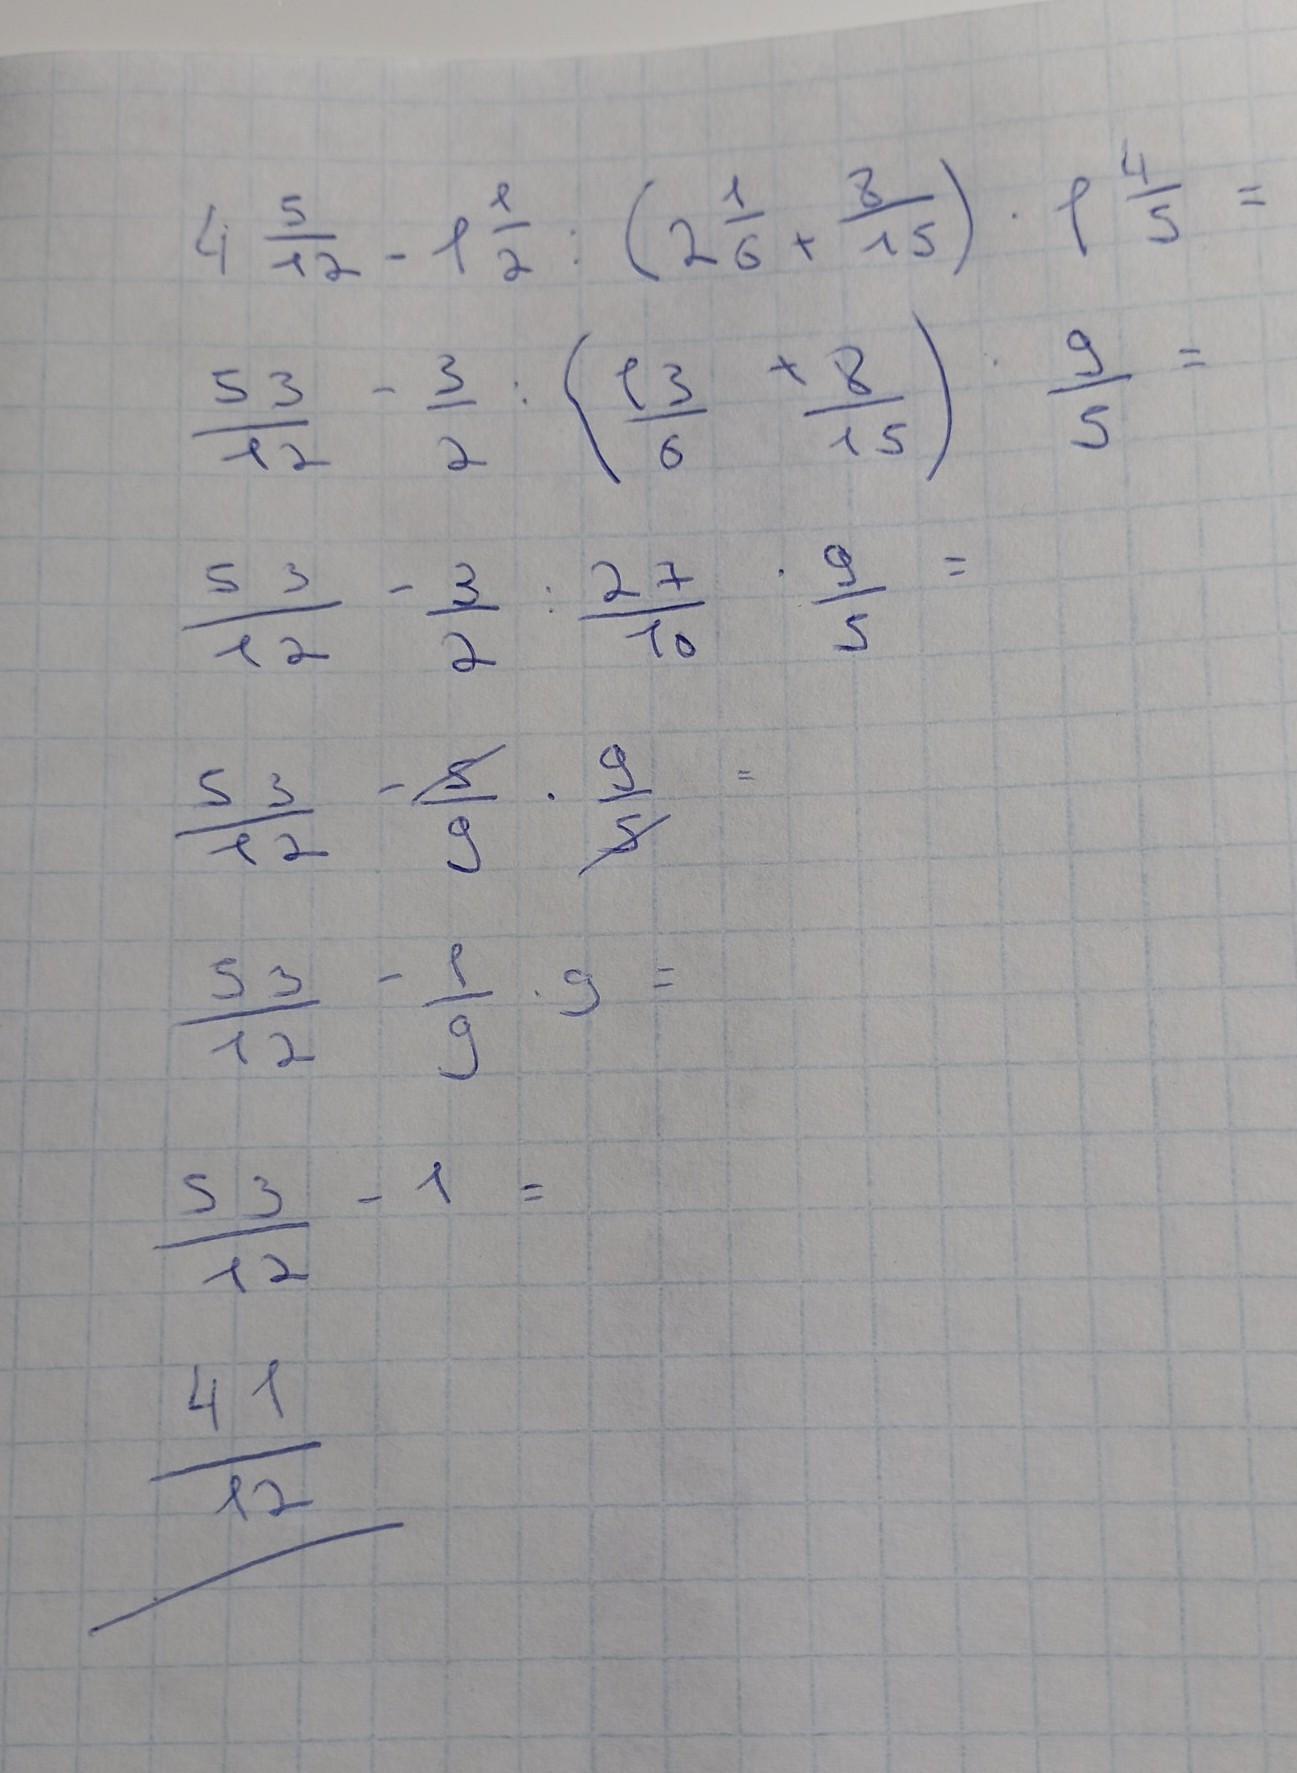 4 5/12 - 1 1/2 : (2 1/6 + 8/15) · 1 4/5 =
53/12 - 3/2 : (13/6 + 8/15) · 9/5 =
53/12 - 3/2 : 27/10 · 9/5 =
53/12 - 5/9 · 9/5 =
53/12 - 1/9 · 9 =
53/12 - 1 =
41/12